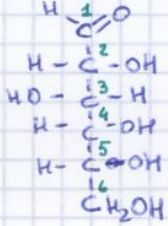 H 1 O
C
2
H - C - OH
3
HO - C - H
4
H - C - OH
5
H - C - OH
6
CH₂OH